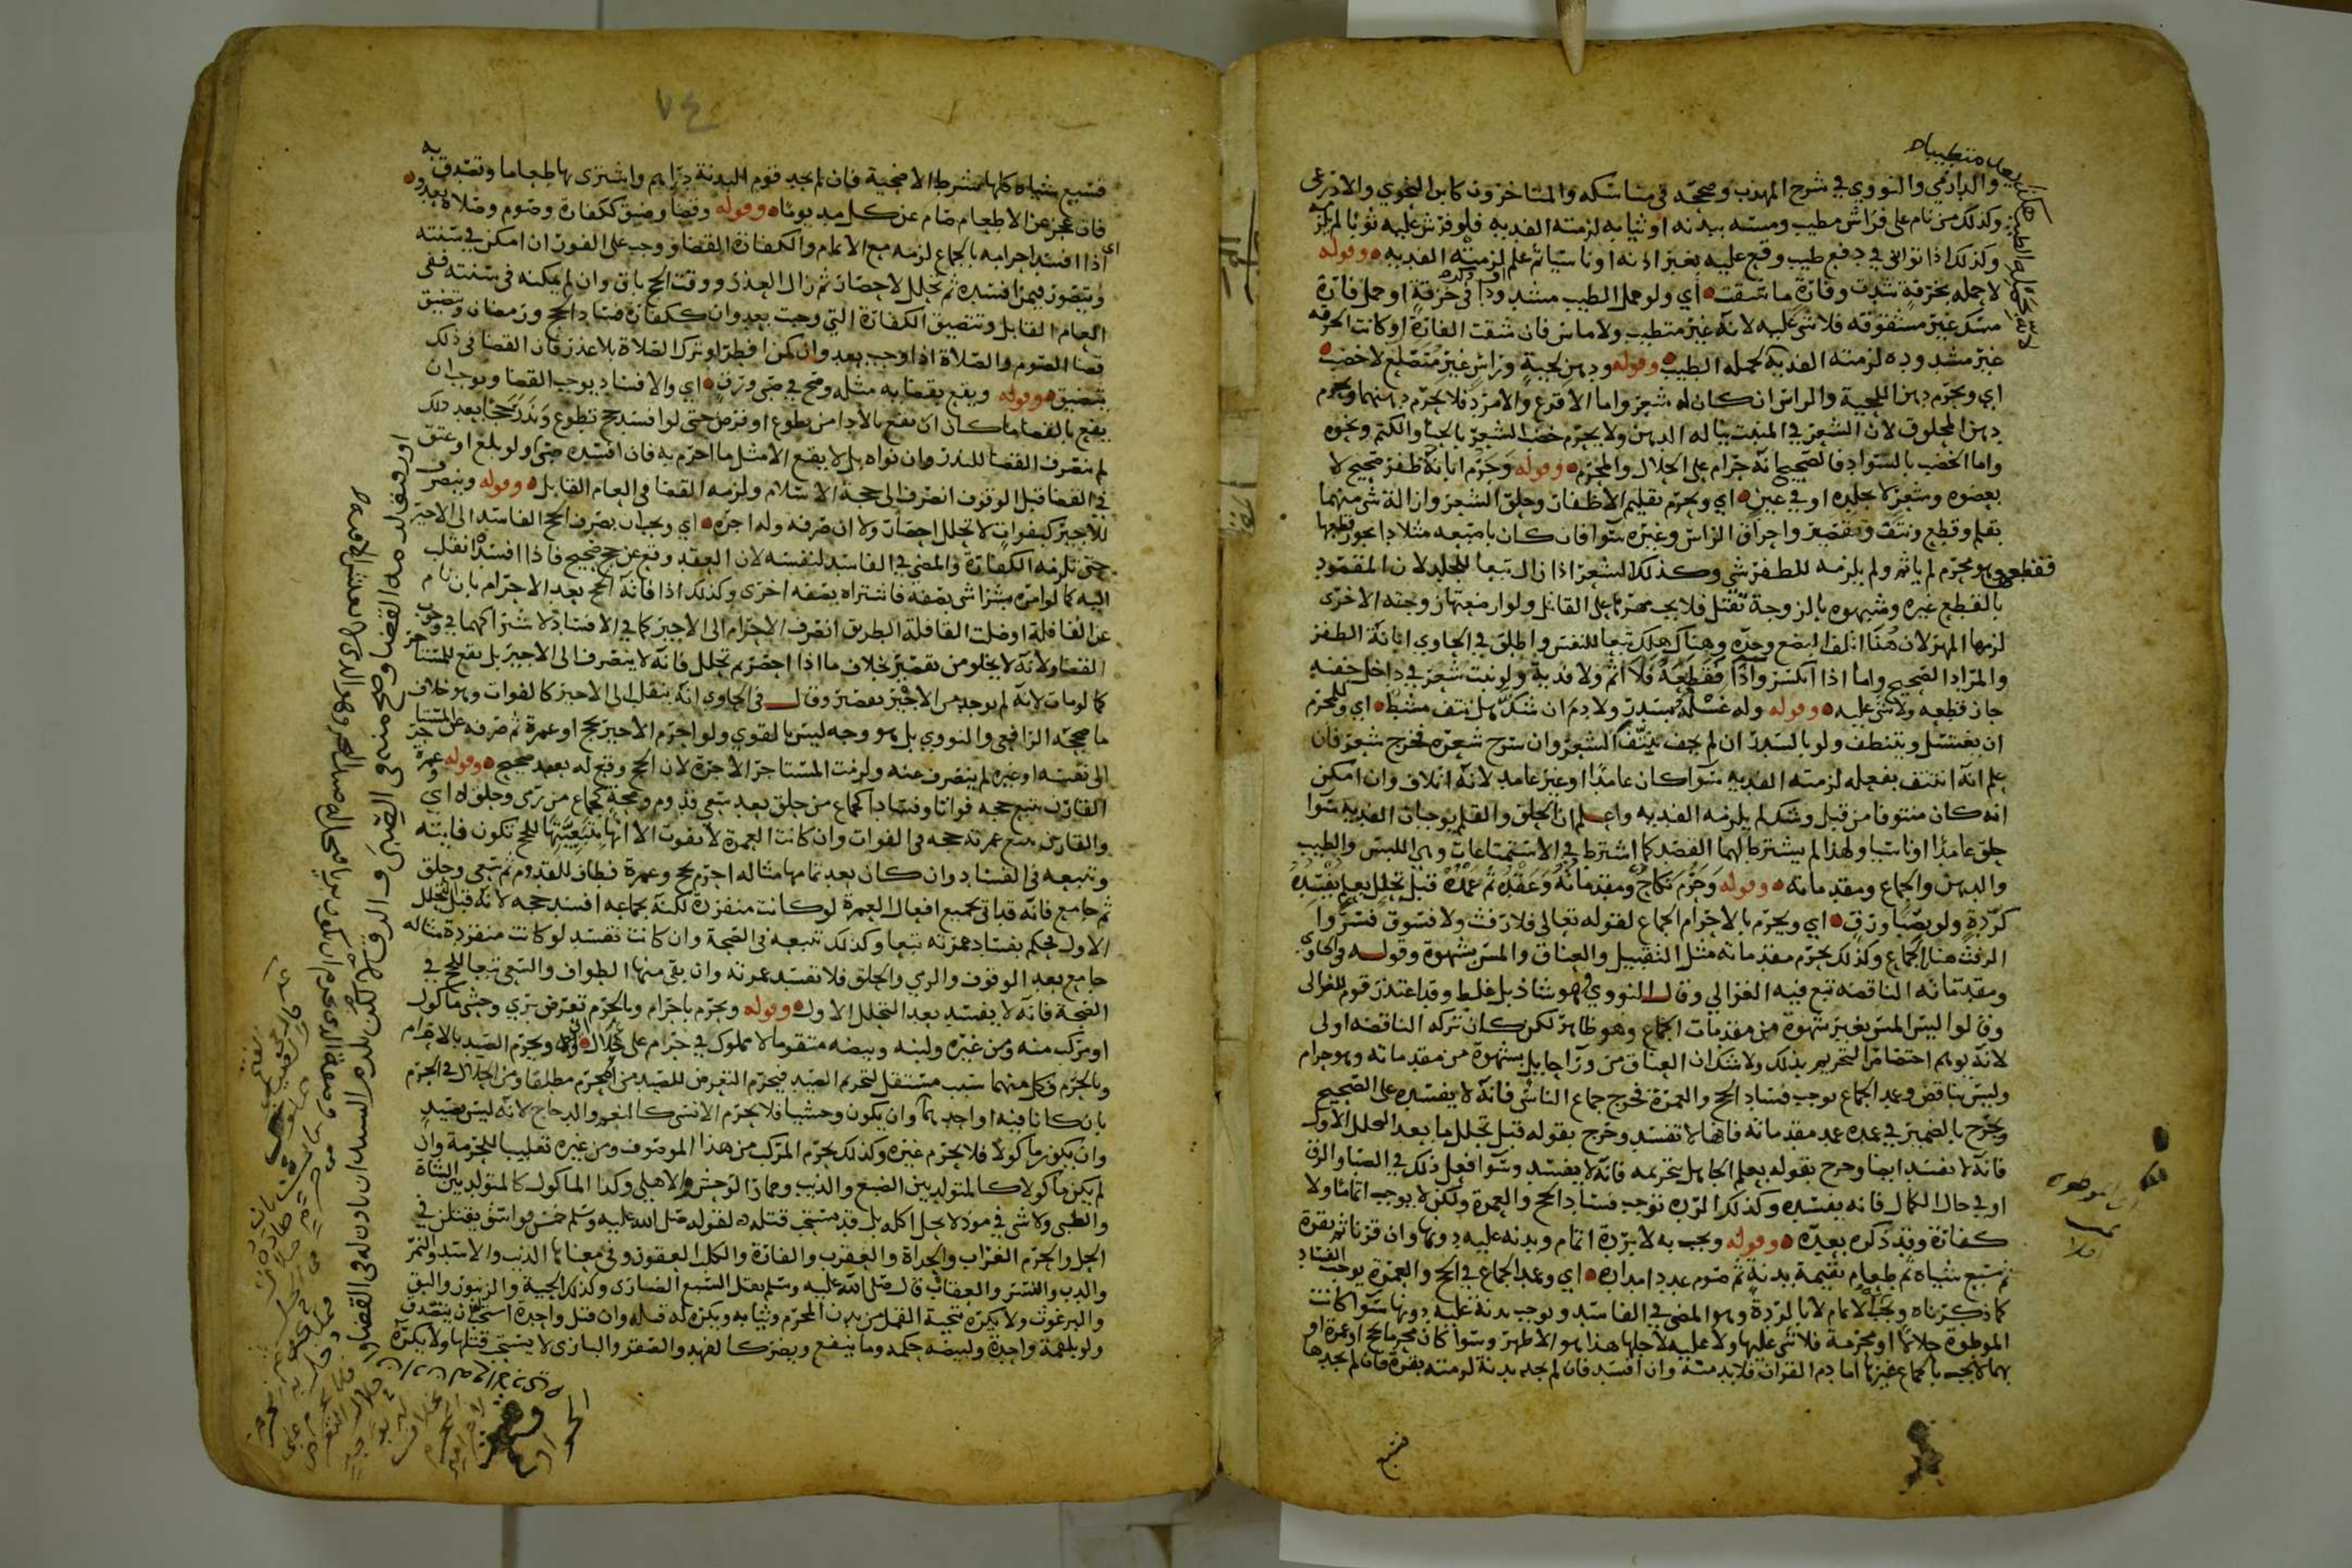 والدارمي والنووي في شرح المهذب وصححه في مناسكه والمتاخرون كابن النحوي والاذرعي
وكذلك من نام على فراش مطيب ومسه ببدنه او ثيابه لزمته الفديه فلو فرش عليه ثوبا لم يلزمه
وكذلك اذا توانى في دفع طيب وقع عليه بغير اذنه او ناسيا ثم علم لزمته الفديه ٥ وقوله
لا حمله بخرقة شدت وفارة ما شقت ٥ أي ولو حمل الطيب مشدودا في خرقة او حمل فارة
مسك غير مشقوقه فلا شي عليه لانه غير متطيب ولا ماس فان شقت الفارة او كانت الخرقه
غير مشدوده لزمته الفديه لحمله الطيب ٥ وقوله ودهن لحية وراس غير متصلع لا خضب ٥
اي ويحرم دهن اللحية والراس ان كان له شعر واما الاقرع والامرد فلا يحرم دهنهما ويحرم
دهن المحلوق لان الشعر في المنبت يناله الدهن ولا يحرم خضب الشعر بالحنا والكتم ونحوه
واما الخضب بالسواد فالصحيح انه حرام على الحلال والمحرم ٥ وقوله وحرم ابانة ظفر صحيح لا
بعضوه وشعر لا بجلده او في عين ٥ اي ويحرم تقليم الاظفار وحلق الشعر وازالة شي منهما
بقلم وقطع ونتف وتقصير واحراق الراس وغيره سوا فان كان باصبعه مثلا دا يجوز قطعها
فقطعها وهو محرم لم ياثم ولم يلزمه للظفر شي وكذلك الشعر اذا زال تبعا للجلد لان المقصود
بالقطع غيره وشبهوه بالزوجة تقتل فلا يجب مهرها على القاتل ولو ارضعتها زوجته الاخرى
لزمها المهر لان هنا اتلف البضع وحده وهناك هلك تبعا للنفس واطلق في الحاوي ابانة الظفر
والمراد الصحيح واما اذا انكسر واذا فقطعه فلا اثم ولا فدية ولو نبت شعر في داخل جفنه
جاز قطعه ولا شي عليه ٥ وقوله وله غسله بسدر ولا دم ان شك هل نتف مشط ٥ اي وللمحرم
ان يغتسل ويتنظف ولو بالسدر ان لم يخف نتف الشعر وان سرح شعره فخرج شعر فان
علم انه انتتف بفعله لزمته الفديه سوا كان عامدا او غير عامد لانه اتلاف وان امكن
انه كان منتوفا من قبل وشك لم يلزمه الفديه واعلم ان الحلق والقلم يوجبان الفديه سوا
حلق عامدا او ناسيا ولهذا لم يشترط لهما القصد كما اشترط في الاستمتاعات وهي اللبس والطيب
والدهن والجماع ومقدماته ٥ وقوله وحرم نكاح ومقدماته وعقده ثم عمده قبل تحلل بعلم يفسده
كردة ولو بصبا ورق ٥ اي ويحرم بالاحرام الجماع لقوله تعالى فلا رفث ولا فسوق فسروا
الرفث هنا بالجماع وكذلك يحرم مقدماته مثل التقبيل والعناق والمس بشهوة وقوله في الحاوي
ومقدماته الناقضه تبع فيه الغزالي وقال النووي هو شاذ بل غلط وقد اعتذر قوم للغزالي
وقالوا ليس المس بغير شهوة من مقدمات الجماع وهو ظاهر لكن كان تركه الناقضه اولى
لانه يوهم اختصاص التحريم بذلك ولا شك ان العناق من ورا حايل بشهوة من مقدماته وهو حرام
وليس بناقض وعمد الجماع يوجب فساد الحج والعمرة فخرج جماع الناسي فانه لا يفسده على الصحيح
وخرج بالضمير في عمده عمد مقدماته فانها لا تفسد وخرج بقوله قبل تحلل ما بعد التحلل الاول
فانه لا يفسد ايضا وخرج بقوله بعلم الجاهل بتحريمه فانه لا يفسد وسوا فعل ذلك في الصبا والرق
او في حال الكمال فانه يفسده وكذلك الرده توجب فساد الحج والعمرة ولكن لا يوجب اتماما ولا
كفارة وقد ذكره بعده ٥ وقوله ويجب به لا بردة اتمام وبدنه عليه دونها وان قرنا ثم بقرة
ثم سبع شياه ثم طعام بقيمة بدنة ثم صوم بعدد امداده ٥ اي وعمد الجماع في الحج والعمرة يوجب الفساد
كما ذكرناه ويجب الاتمام لا بالردة وهو المضي في الفاسد ويوجب بدنة عليه دونها سوا كانت
الموطوة حلالا او محرمة فلا شي عليها ولا عليه لاجلها هذا هو الاظهر وسوا كان محرما بحج او عمرة او
بهما لا يجب بالجماع غيرها اما دم القران فلا بد منه وان افسد فان لم يجد بدنة لزمته بقرة فان لم يجدها
فسبع
٧٤
فسبع شياه كلها بشرط الاضحية فان لم يجد قوم البدنة دراهم واشترى بها طعاما وتصدق به
فان عجز عن الاطعام صام عن كل مد يوما ٥ وقوله وقضا وضيق ككفارة وصوم وصلاة بعده ٥
اي اذا افسد احرامه بالجماع لزمه مع الاتمام والكفارة القضا ووجب على الفور ان امكن في سنته
ويتصور فيمن افسده ثم تحلل لاحصار ثم زال العذر ووقت الحج باق وان لم يمكنه في سنته ففي
العام القابل وتتضيق الكفارة التي وجبت بعدوان ككفارة فساد الحج ورمضان ويتضيق
قضا الصوم والصلاة اذا وجب بعدوان كمن افطر او ترك الصلاة بلا عذر فان القضا في ذلك
يتضيق ٥ وقوله ويقع بقضايه مثله وصح في صبى ورق ٥ اي والافساد يوجب القضا ويوجب ان
يقع بالقضا ما كان ان يقع بالادا من تطوع او فرض حتى لو افسد حج تطوع ونذر حجا بعد ذلك
لم ينصرف القضا للنذر وان نواه بل لا يقع الا مثل ما احرم به فان افسده صبى ولو بلغ او عتق
في القضا قبل الوقوف انصرف الى حجة الاسلام ولزمه القضا في العام القابل ٥ وقوله وينصرف
للاجير كبفوات لا تحلل احصار ولا ان صرفه وله اجره ٥ اي ويجب ان يصرف الحج الفاسد الى الاجير
حتى تلزمه الكفارة والمضي في الفاسد لنفسه لان العقد وقع عن حج صحيح فاذا افسده انقلب
اليه كما لو امره بشرا شي بصفه فاشتراه بصفه اخرى وكذلك اذا فاته الحج بعد الاحرام بان نام
عن القافلة او ضلت القافلة الطريق انصرف الاحرام الى الاجير كما في الافساد لاشتراكهما في وجوب
القضا ولانه لا يخلو من تقصير بخلاف ما اذا احصر ثم تحلل فانه لا ينصرف الى الاجير بل يقع للمستاجر
كما لو مات لانه لم يوجد من الاجير تقصير وقال في الحاوي انه ينقلب الى الاجير كالفوات وهو خلاف
ما صححه الرافعي والنووي بل هو وجه ليس بالقوي ولو احرم الاجير بحج او عمرة ثم صرفه عن المستاجر
الى نفسه او غيره لم ينصرف عنه ولزمت المستاجر الاجرة لان الحج وقع له بعقد صحيح ٥ وقوله وعمرة
القارن تتبع حجه فواتا وفسادا كجماع من حلق بعد سعي قدوم وصحة كجماع من رمى وحلق له اي
والقارن تتبع عمرته حجه في الفوات وان كانت العمرة لا تفوت الا انها بتبعيتها للحج تكون فايته
وتتبعه في الفساد وان كان بعد تمامها مثاله احرم بحج وعمرة فطاف للقدوم ثم سعى وحلق
ثم جامع فانه قد اتى بجميع افعال العمرة لو كانت منفردة لكنه بجماعه افسد حجه لانه قبل التحلل
الاول فحكم بفساد عمرته تبعا وكذلك تتبعه في الصحة وان كانت تفسد لو كانت منفردة مثاله
جامع بعد الوقوف والرمي والحلق فلا تفسد عمرته وان بقي منها الطواف والسعي تبعا للحج في
الصحة فانه لا يفسد بعد التحلل الاول ٥ وقوله ويحرم باحرام وبالحرم تعرض بري وحشي ماكول
او مركب منه ومن غيره ولبنه وبيضه متقوما لا مملوك في حرام على حلال ٥ اي ويحرم الصيد بالاحرام
وبالحرم فكل منهما سبب مستقل لتحريم الصيد فيحرم التعرض للصيد من المحرم مطلقا ومن الحلال في الحرم
بان كانا فيه او احدهما وان يكون وحشيا فلا يحرم الانسي كالنعم والدجاج لانه ليس بصيد
وان يكون ماكولا فلا يحرم غيره وكذلك يحرم المركب من هذا الموصوف ومن غيره تغليبا للحرمة وان
لم يكن ماكولا كالمتولد بين الضبع والذيب وحمار الوحش والاهلي وكذا الماكول كالمتولد بين الشاة
والظبي ولا شي في موذ لا يحل اكله بل قد يستحب قتله لقوله صلى الله عليه وسلم خمس فواسق يقتلن في
الحل والحرم الغراب والحداة والعقرب والفارة والكلب العقور وفي معناها الذيب والاسد والنمر
والدب والنسر والعقاب قال صلى الله عليه وسلم يقتل السبع الضاري وكذلك الحية والزنبور والبق
والبرغوث ولا يكره تنحية القمل من بدن المحرم وثيابه ويكره له قتله وان قتل واحدة استحب ان يتصدق
ولو بلقمة واحدة ولبيضه حكمه وما ينفع ويضر كالفهد والصقر والبازي لا يستحب قتلها ولا يكره